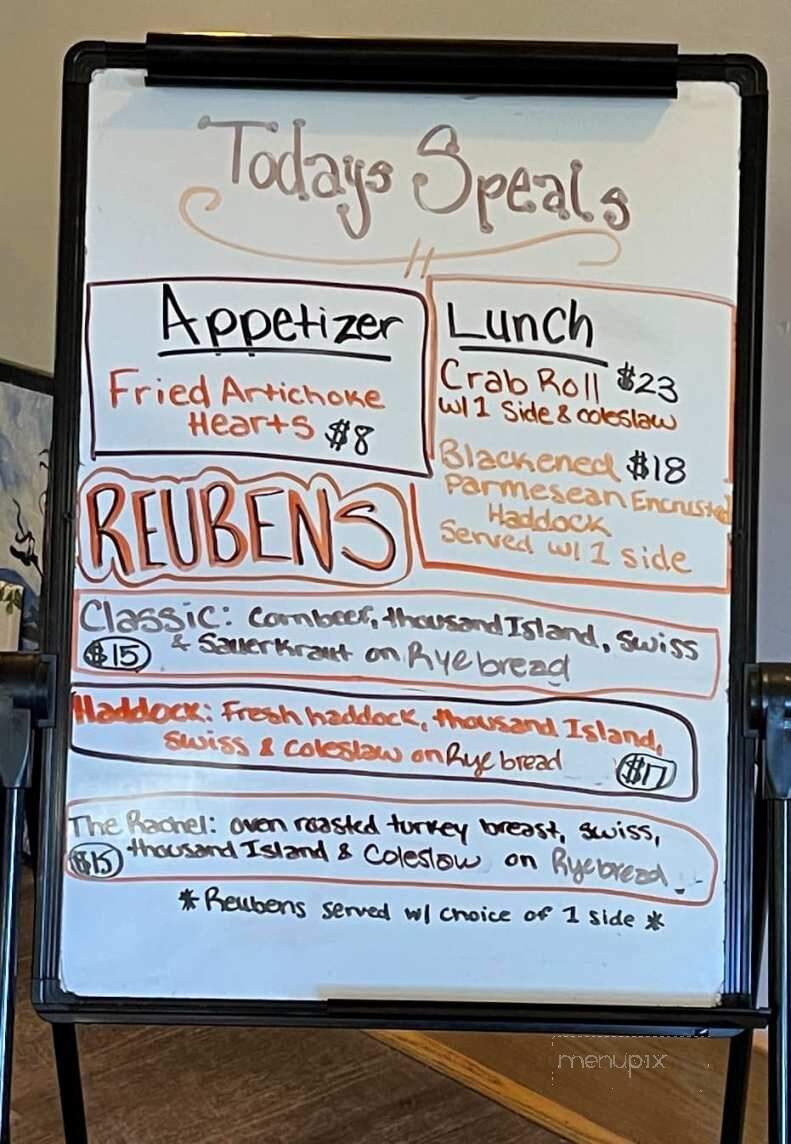 Todays Speals
Appetizer
Fried Artichoke
Hearts $8
Lunch
Crab Roll $23
w/ 1 Side & coleslaw
Blackened $18
Parmesean Encrusted
Haddock
Served w/ 1 side
REUBENS
Classic: Cornbeef, thousand Island, Swiss
$15 & Sauerkraut on Rye bread
Haddock: Fresh haddock, thousand Island,
Swiss & Coleslaw on Rye bread $17
The Rachel: oven roasted turkey breast, swiss,
$15 thousand Island & Coleslaw on Rye bread
*Reubens served w/ choice of 1 side *
menupix